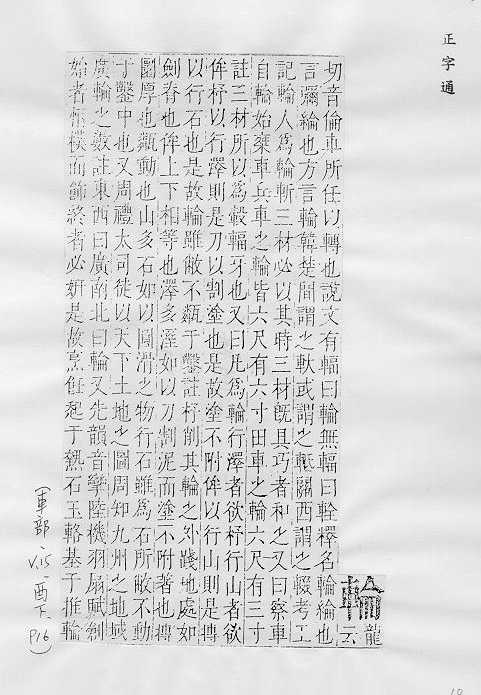 正字通
輪 龍云
切音倫車所任以轉也說文有輻曰輪無輻曰輇釋名輪綸也
言彌綸也方言輪韓楚間謂之軑或謂之軝關西謂之輟考工
記輪人爲輪斬三材必以其時三材旣具巧者和之又曰察車
自輪始乗車兵車之輪皆六尺有六寸田車之輪六尺有三寸
註三材所以爲轂輻牙也又曰凡爲輪行澤者欲杼行山者欲
侔杼以行澤則是刀以割塗也是故塗不附侔以行山則是摶
以行石也是故輪雖敝不甐于鑿註杼削其輪之外踐地處如
劍脊也侔上下相等也澤多溼如以刀割泥而塗不附著也摶
圜厚也甐動也山多石如以圜滑之物行石雖爲石所敝不動
于鑿中也又周禮大司徒以天下土地之圖周知九州之地域
廣輪之數註東西曰廣南北曰輪又先韻音攣陸機羽扇賦創
始者恆樸而飾終者必妍是故烹飪起于熱石玉輅基于推輪
(車部 V.15 - 酉下 P16)